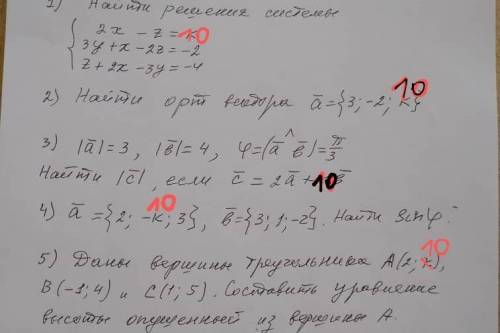 1) Найти решения системы
2x - z = 10
3y + x - 2z = -2
z + 2x - 3y = -4
2) Найти орт вектора ā = {3; -2; 10}
3) |ā| = 3, |b̄| = 4, φ = (ā^b̄) = π/3
Найти |c̄|, если c̄ = 2ā + 10b̄
4) ā = {2; -к; 3}, b̄ = {3; 1; -2}. Найти sin φ.
10
5) Даны вершины треугольника А(2; к),
10
В(-1; 4) и С(1; 5). Составить уравнение
высоты опущенной из вершины А.